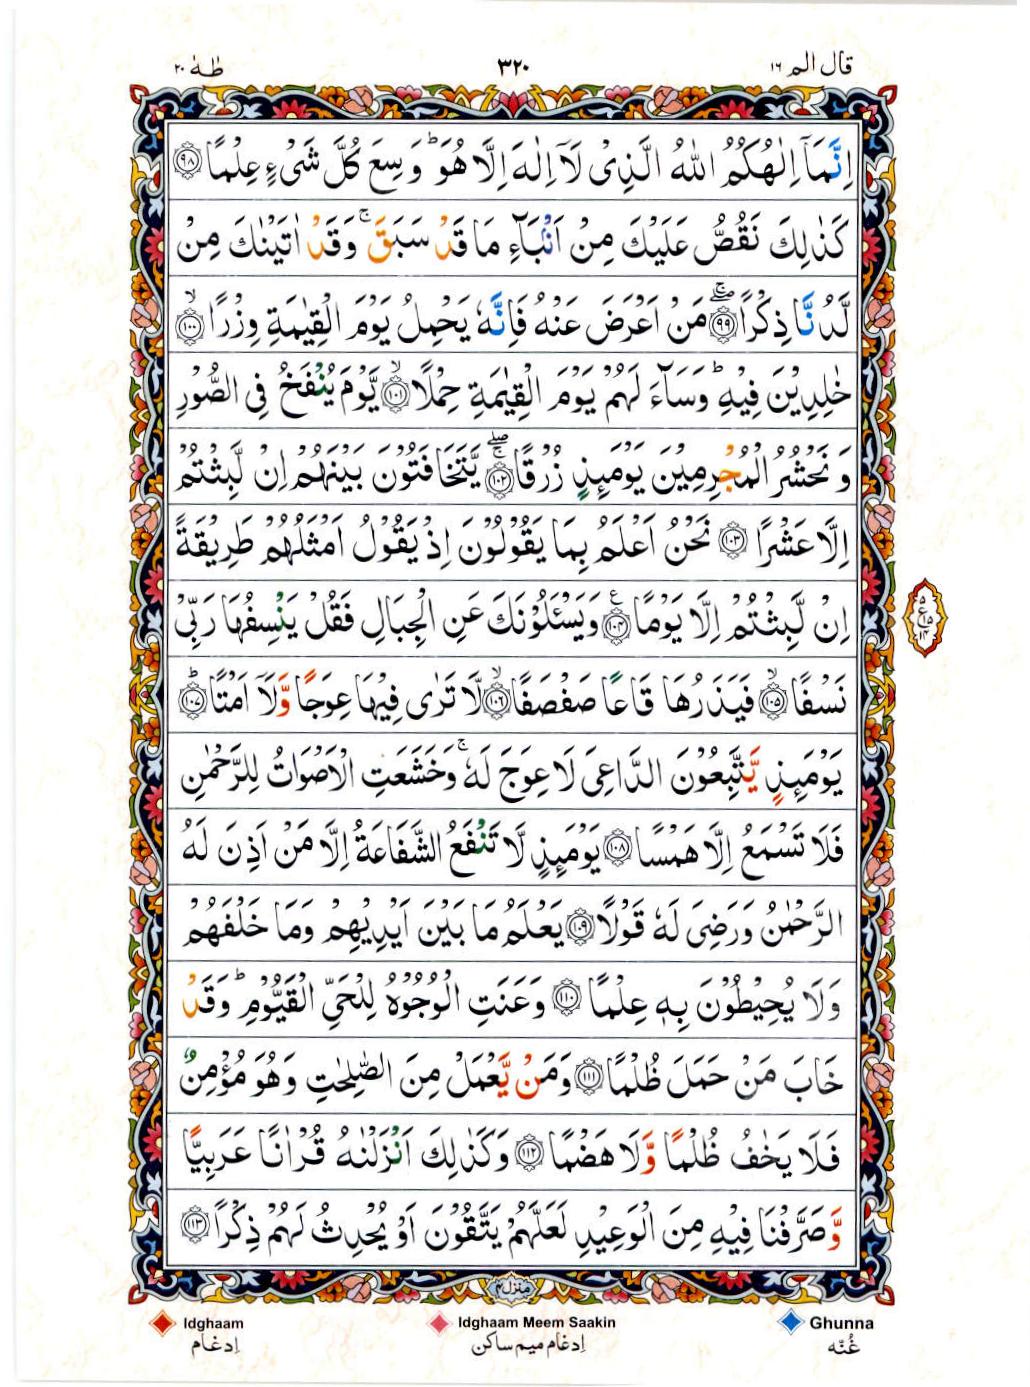 قال الم ١٦ ٣٢٠ طٰهٰ ٢٠
اِنَّمَاۤ اِلٰهُكُمُ اللّٰهُ الَّذِیْ لَاۤ اِلٰهَ اِلَّا هُوَؕ وَسِعَ كُلَّ شَیْءٍ عِلْمًا ۹۸
كَذٰلِكَ نَقُصُّ عَلَیْكَ مِنْ اَنْۢبَآءِ مَا قَدْ سَبَقَۚ وَقَدْ اٰتَیْنٰكَ مِنْ
لَّدُنَّا ذِكْرًاۖۚ ۹۹ مَنْ اَعْرَضَ عَنْهُ فَاِنَّهٗ یَحْمِلُ یَوْمَ الْقِیٰمَةِ وِزْرًاۙ ۱۰۰
خٰلِدِیْنَ فِیْهِؕ وَسَآءَ لَهُمْ یَوْمَ الْقِیٰمَةِ حِمْلًاۙ ۱۰۱ یَّوْمَ یُنْفَخُ فِی الصُّوْرِ
وَ نَحْشُرُ الْمُجْرِمِیْنَ یَوْمَىِٕذٍ زُرْقًاۖۚ ۱۰۲ یَّتَخَافَتُوْنَ بَیْنَهُمْ اِنْ لَّبِثْتُمْ
اِلَّا عَشْرًا ۱۰۳ نَحْنُ اَعْلَمُ بِمَا یَقُوْلُوْنَ اِذْ یَقُوْلُ اَمْثَلُهُمْ طَرِیْقَةً
اِنْ لَّبِثْتُمْ اِلَّا یَوْمًا ۱۰۴ وَیَسْـَٔلُوْنَكَ عَنِ الْجِبَالِ فَقُلْ یَنْسِفُهَا رَبِّیْ
نَسْفًاۙ ۱۰۵ فَیَذَرُهَا قَاعًا صَفْصَفًاۙ ۱۰۶ لَّا تَرٰی فِیْهَا عِوَجًا وَّلَاۤ اَمْتًاؕ ۱۰۷
یَوْمَىِٕذٍ یَّتَّبِعُوْنَ الدَّاعِیَ لَا عِوَجَ لَهٗۚ وَخَشَعَتِ الْاَصْوَاتُ لِلرَّحْمٰنِ
فَلَا تَسْمَعُ اِلَّا هَمْسًا ۱۰۸ یَوْمَىِٕذٍ لَّا تَنْفَعُ الشَّفَاعَةُ اِلَّا مَنْ اَذِنَ لَهُ
الرَّحْمٰنُ وَرَضِیَ لَهٗ قَوْلًا ۱۰۹ یَعْلَمُ مَا بَیْنَ اَیْدِیْهِمْ وَمَا خَلْفَهُمْ
وَلَا یُحِیْطُوْنَ بِهٖ عِلْمًا ۱۱۰ وَعَنَتِ الْوُجُوْهُ لِلْحَیِّ الْقَیُّوْمِؕ وَقَدْ
خَابَ مَنْ حَمَلَ ظُلْمًا ۱۱۱ وَمَنْ یَّعْمَلْ مِنَ الصّٰلِحٰتِ وَهُوَ مُؤْمِنٌ
فَلَا یَخٰفُ ظُلْمًا وَّلَا هَضْمًا ۱۱۲ وَكَذٰلِكَ اَنْزَلْنٰهُ قُرْاٰنًا عَرَبِیًّا
وَّصَرَّفْنَا فِیْهِ مِنَ الْوَعِیْدِ لَعَلَّهُمْ یَتَّقُوْنَ اَوْ یُحْدِثُ لَهُمْ ذِكْرًا ۱۱۳
۵
ع
۱۵
۱۴
منزل ۴
Idghaam Idghaam Meem Saakin Ghunna
اِدغام اِدغام میم ساکن غُنّه